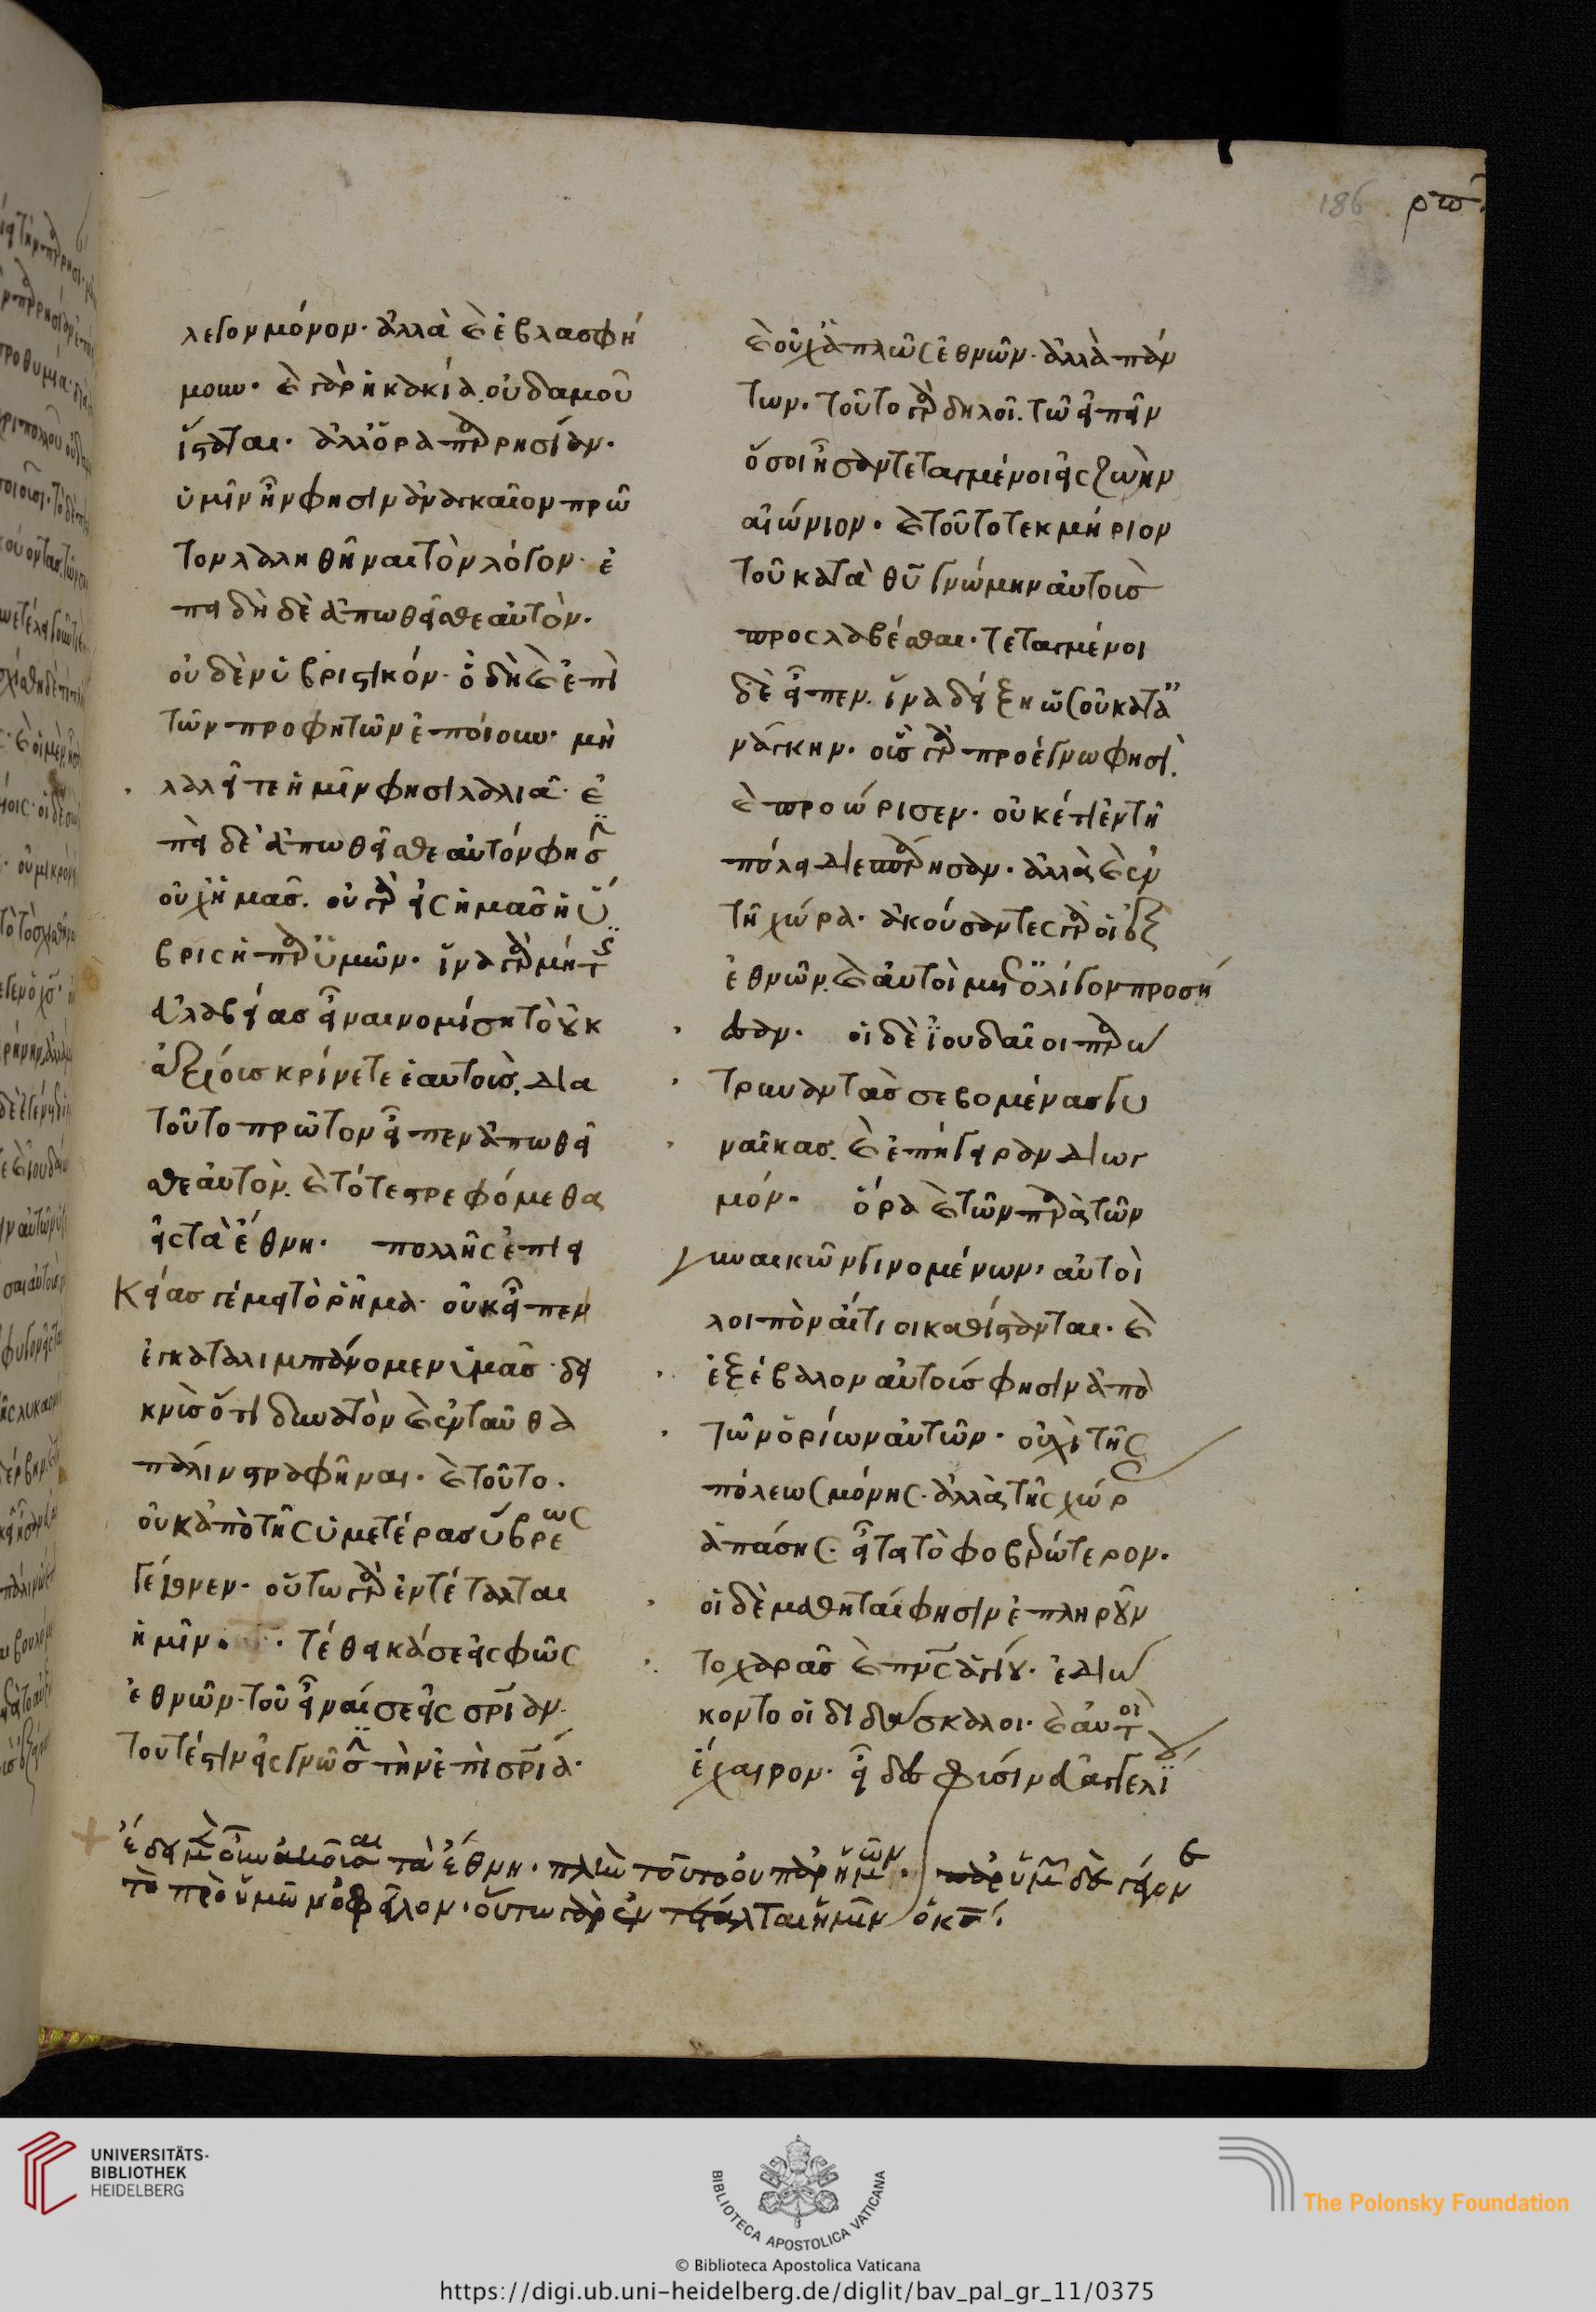 186 ρπϛ
λεγον μόνον· ἀλλὰ καὶ ἐβλασφή
μουν· καὶ γὰρ ἡ κακία οὐδαμοῦ
ἵσταται· ἀλλ' ὅρα παρρησίαν·
ὑμῖν ἦν φησὶν ἀναγκαῖον πρῶ
τον λαληθῆναι τὸν λόγον· ἐ
πειδὴ δὲ ἀπωθεῖσθε αὐτὸν·
οὐδὲν ὑβριστικόν· ὃ δὴ καὶ ἐπὶ
τῶν προφητῶν ἐποίουν· μὴ
λαλεῖτε ἡμῖν φησὶ λαλιᾶ· ἐ
πεὶ δὲ ἀπωθεῖσθε αὐτόν φησ
οὐχ ἡμᾶς· οὐ γὰρ εἰς ἡμᾶς ἡ ὕ
βρις ἡ παρ ὑμῶν· ἵνα γὰρ μή τις
εὐλαβείας εἶναι νομίση τὸ οὐκ
ἀξίους κρίνετε ἑαυτοὺς, δια
τοῦτο πρῶτον εἶπεν ἀπωθεῖ
σθε αὐτὸν· καὶ τότε στρεφόμεθα
εἰς τὰ ἔθνη· πολλῆς ἐπιει
κείας γέμει τὸ ῥῆμα· οὐκ εἶπεν
ἐγκαταλιμπάνομεν ὑμᾶς· δει
κνὺς ὅτι δυνατὸν καὶ ἐνταῦθα
πάλιν στραφῆναι· καὶ τοῦτο·
οὐκ ἀπὸ τῆς ὑμετέρας ὕβρεως
γέγονεν· οὕτω γὰρ ἐντέταλται
ἡμῖν· τέθεικά σε εἰς φῶς
ἐθνῶν· τοῦ εἶναί σε εἰς σρίαν·
τουτέστιν εἰς γνῶσ τὴν ἐπὶ σρία·
καὶ οὐχ ἁπλῶς ἐθνῶν· ἀλλὰ πάν
των· τοῦτο γὰρ δηλοῖ τῶ εἰπεῖν
ὅσοι ἦσαν τεταγμένοι εἰς ζωὴν
αἰώνιον· καὶ τοῦτο τεκμήριον
τοῦ κατὰ θυ γνώμην αὐτοὺς
προσλαβέσθαι· τεταγμένοι
δὲ εἶπεν· ἵνα δείξη ὡς οὐ κατα
νάγκην· οὓς γὰρ προέγνω φησὶ
καὶ προώρισεν· οὐκέτι ἐν τῆ
πόλει διεσπάρησαν· ἀλλὰ καὶ ἐν
τῆ χώρα· ἀκούσαντες γὰρ οἱ ἐξ
ἐθνῶν· καὶ αὐτοὶ μετ ὀλίγον προσή
εσαν· οἱ δὲ ἰουδαῖοι παρώ
τρυναν τὰς σεβομένας γυ
ναῖκας· καὶ ἐπήγειραν διωγ
μόν· ὅρα καὶ τῶν παρὰ τῶν
γυναικῶν γινομένων· αὐτοὶ
λοιπὸν αἴτιοι καθίστανται· καὶ
ἐξέβαλον αὐτούς φησὶν ἀπὸ
τῶν ὁρίων αὐτῶν· οὐχὶ τῆς
πόλεως μόνης· ἀλλὰ τῆς χώρας
ἁπάσης· εἶτα τὸ φοβερώτερον·
οἱ δὲ μαθηταί φησὶν ἐπληροῦν
το χαρᾶς καὶ πνς ἁγίου· ἐδιώ
κοντο οἱ διδάσκαλοι· καὶ αὐτοὶ
ἔχαιρον· εἶδες φύσιν εὐαγγελί
τὰ ἔθνη· παρ ὑμῶν δὲ γέγον
τὸ πρὸ ὑμῶν ὀφεῖλον· οὕτω γὰρ ἐντέταλται ἡμῖν ὁ κς·
UNIVERSITÄTS-
BIBLIOTHEK
HEIDELBERG
BIBLIOTECA APOSTOLICA VATICANA
© Biblioteca Apostolica Vaticana
The Polonsky Foundation
https://digi.ub.uni-heidelberg.de/diglit/bav_pal_gr_11/0375